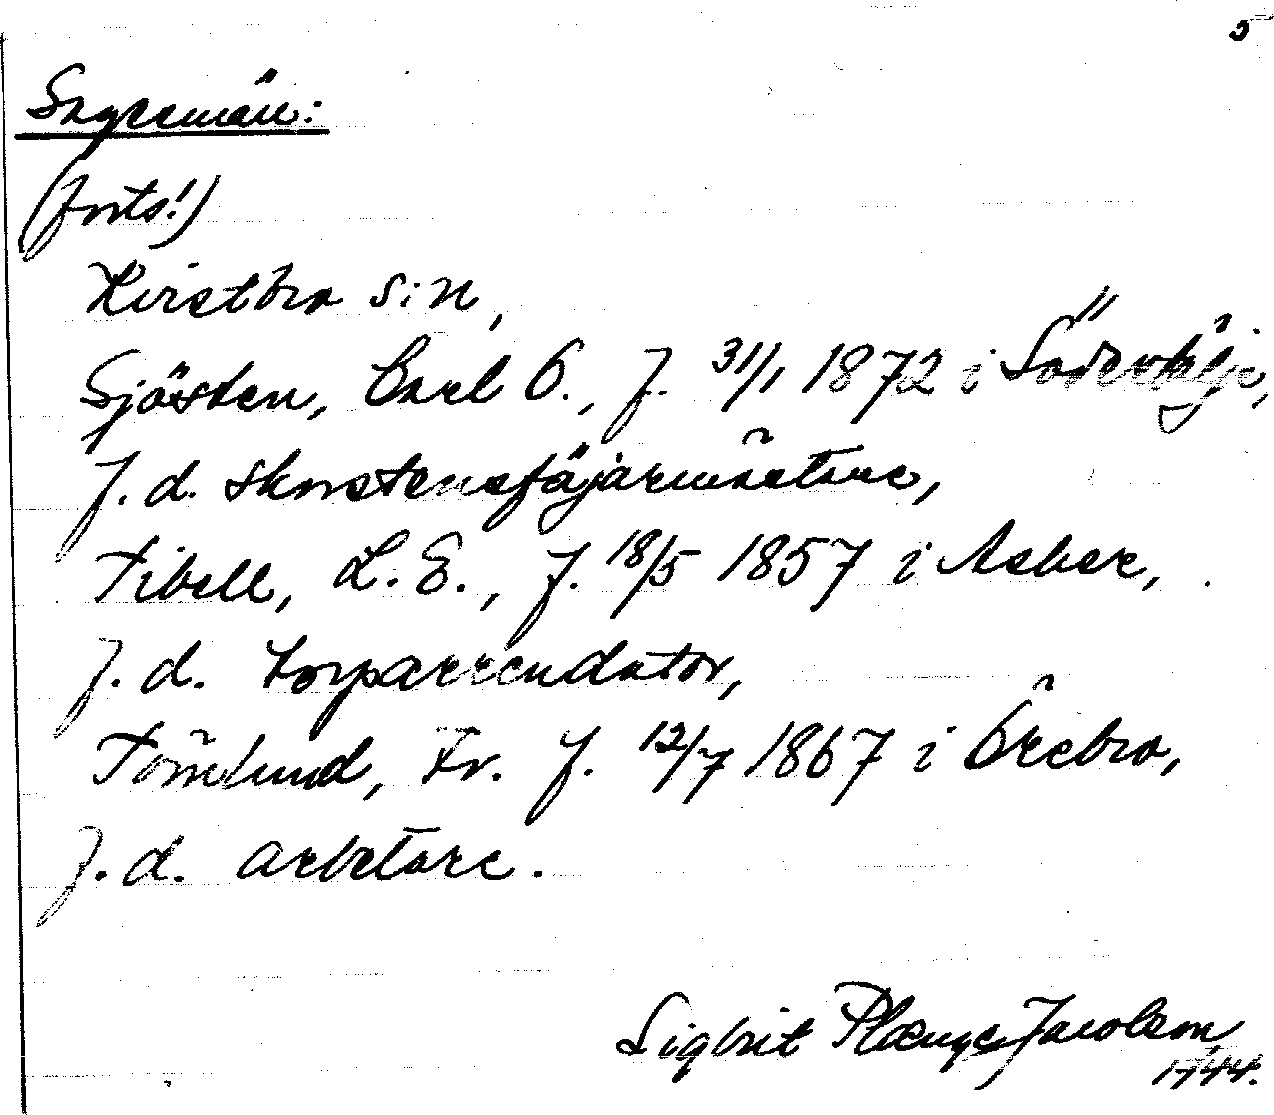 5
Sagesmän:
(forts!)
Kvistbro s:n,
Sjösten, Carl O., f. 31/1 1872 i Södertälje,
f.d. skorstensfejarmästare,
Tibell, L.E., f. 18/5 1857 i Asker,
f.d. torparrendator,
Törnlund, Fr. f. 12/7 1867 i Örebro,
f.d. arbetare.
Sigbrit Plænge Jacobson,
1944.